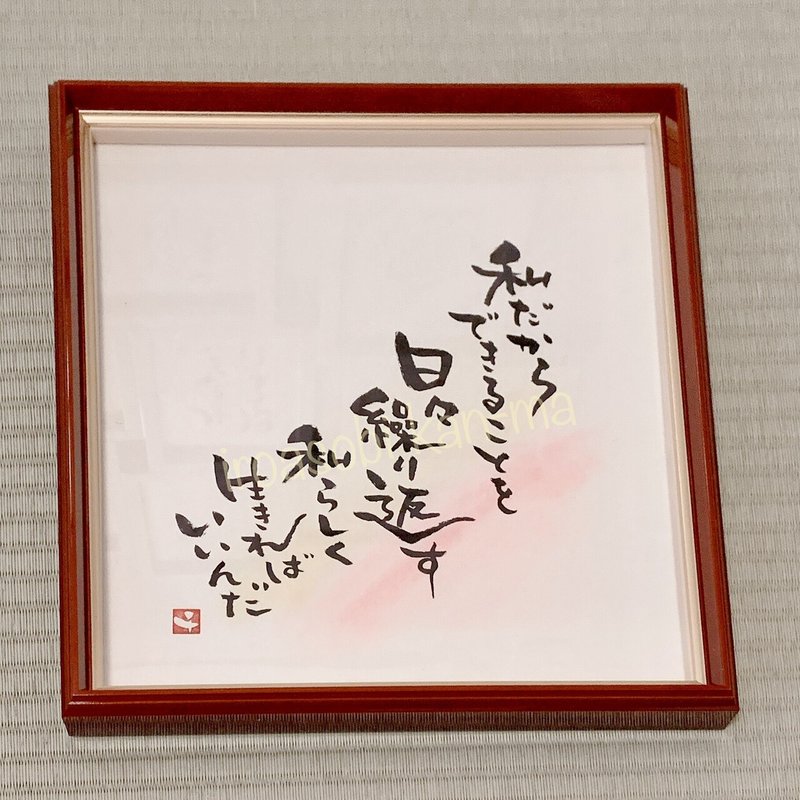 私だから
できることを
日々
繰り返す
私らしく
生きれば
いいんだ